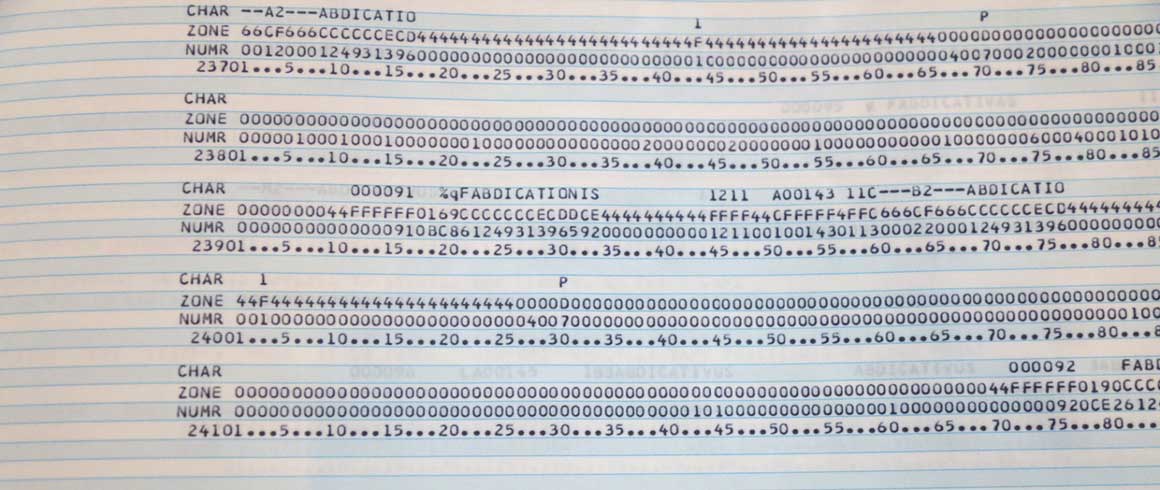 CHAR --A2---ABDICATIO 1 P
ZONE 66CF666CCCCCCECD44444444444444444444444444F44444444444444444444440000D0000000000000000
NUMR 00120001249313960000000000000000000000000010000000000000000000000040070002000000010001
23701...5...10...15...20...25...30...35...40...45...50...55...60...65...70...75...80...85
CHAR
ZONE 0000000000000000000000000000000000000000000000000000000000000000000000000000000000000
NUMR 0000010001000100000001000000000000000200000002000000010000000000010000000600040001010
23801...5...10...15...20...25...30...35...40...45...50...55...60...65...70...75...80...85
CHAR 000091 %qFABDICATIONIS 1211 A00143 11C---B2---ABDICATIO
ZONE 0000000044FFFFFF0169CCCCCCECDDCE4444444444FFFF44CFFFFF4FFC666CF666CCCCCCECD444444444
NUMR 00000000000000910BC8612493139659200000000001211001001430113000220001249313960000000000
23901...5...10...15...20...25...30...35...40...45...50...55...60...65...70...75...80...8
CHAR 1 P
ZONE 44F44444444444444444444440000D0000000000000000000000000000000000000000000000000000000
NUMR 0010000000000000000000000040070000000000000000000000000000000000000000000000000000100
24001...5...10...15...20...25...30...35...40...45...50...55...60...65...70...75...80...8
CHAR 000092 FABD
ZONE 0000000000000000000000000000000000000000000000000000000000000000000044FFFFFF0190CCCC
NUMR 000000000000000000000000000000000000000000101000000000000000100000000000000920CE26124
24101...5...10...15...20...25...30...35...40...45...50...55...60...65...70...75...80...